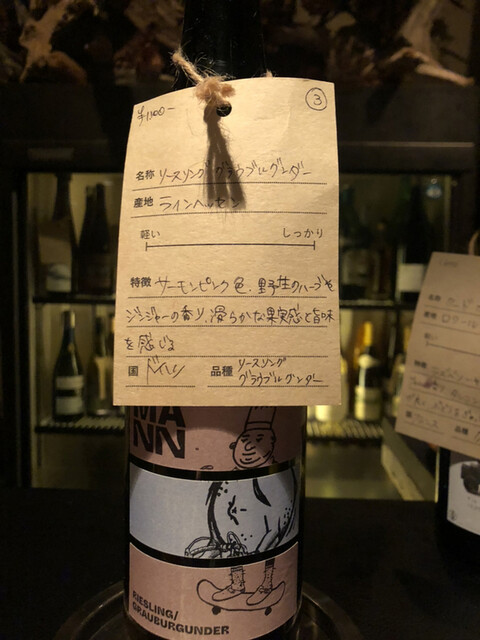 ③
¥1100-
名称 リースリング グラウブルグンダー
産地 ラインヘッセン
軽い しっかり
特徴 サーモンピンク色、野生のハーブや
ジンジャーの香り、滑らかな果実感と旨味
を感じる
国 ドイツ 品種 リースリング
グラウブルグンダー
MA
NN
RIESLING/
GRAUBURGUNDER
名称
産地 ロワール
軽い
特徴
国 フランス 品種